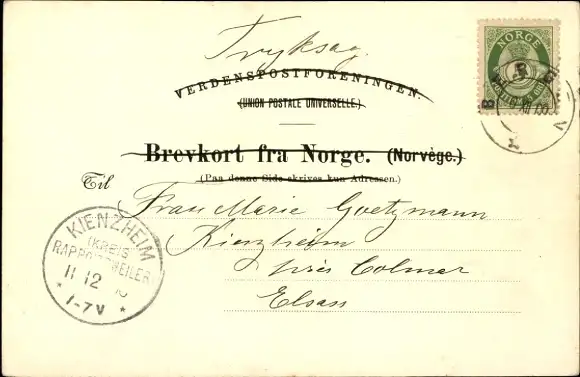 Tryksag.
VERDENSPOSTFORENINGEN.
(UNION POSTALE UNIVERSELLE.)
Brevkort fra Norge. (Norvège.)
(Paa denne Side skrives kun Adressen.)
Til
Frau Marie Goetzmann
Kienzheim
près Colmar
Elsass
NORGE
KIENZHEIM
(KREIS
RAPPOLTSWEILER)
11 12
* 1-7V *